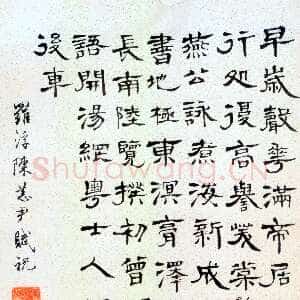 早歲聲華滿帝居
行処優高譽美棠
燕公詠煮海新成
書地極東溟膏澤
長南陸覽揆初曾
語開湯網粵士人
後車
羅浮陳恭尹賦祝
Shufawang.CN